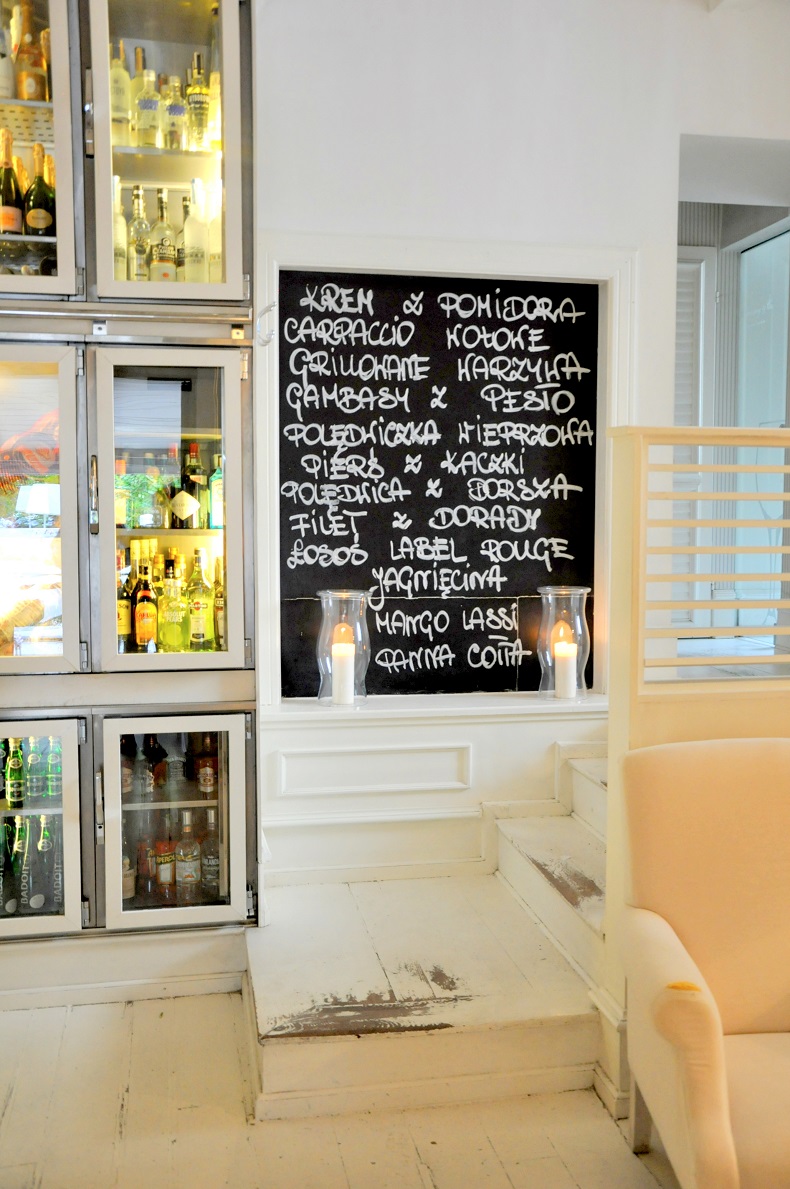 KREM Z POMIDORA
CARPACCIO WOŁOWE
GRILLOWANE WARZYWA
GAMBASY Z PESTO
POLĘDWICZKA WIEPRZOWA
PIERŚ Z KACZKI
POLĘDWICA Z DORSZA
FILET Z DORADY
ŁOSOŚ LABEL ROUGE
JAGNIĘCINA
MANGO LASSI
PANNA COTTA
BADOIT
BADOIT